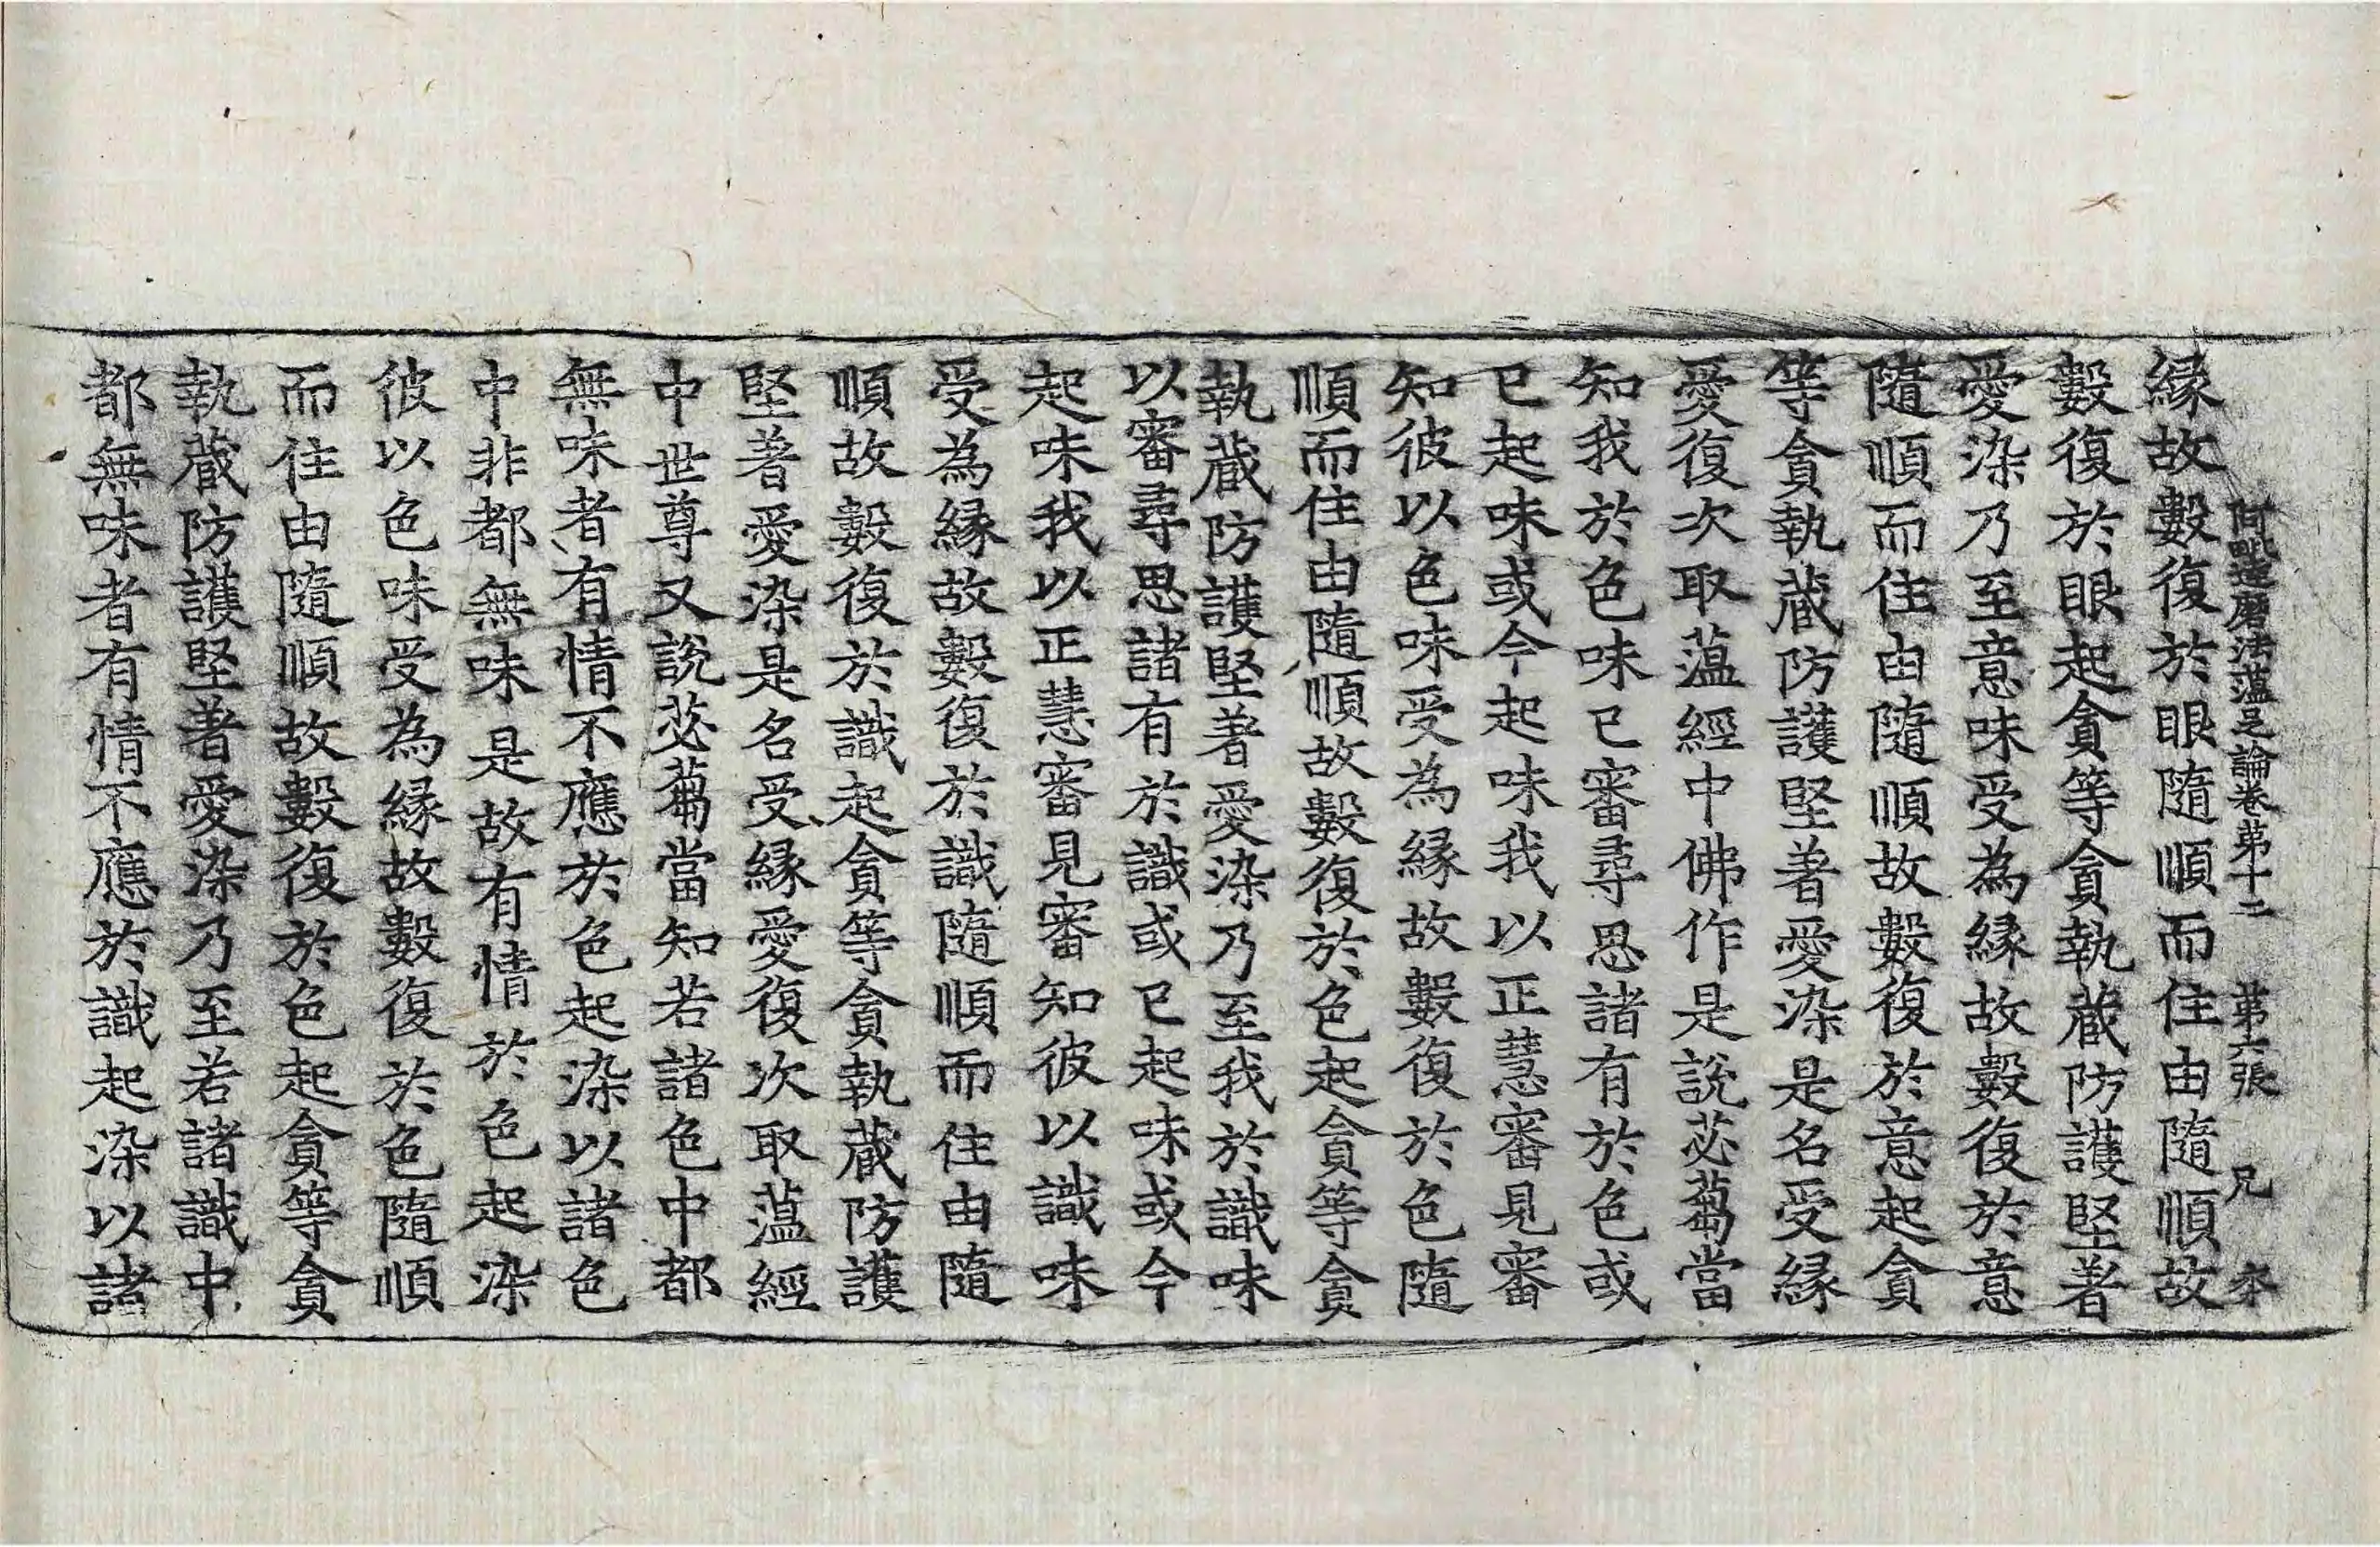 阿毗達磨法蕴足論卷第十二　第六張　兄　夲
縁故數復於眼隨順而住由隨順故
數復於眼起貪等貪執蔵防護堅著
愛染乃至意味受為縁故數復於意
隨順而住由隨順故數復於意起貪
等貪執蔵防護堅著愛染是名受縁
愛復次取蕰經中佛作是說苾蒭當
知我於色味已審尋思諸有於色或
已起味或今起味我以正慧審見審
知彼以色味受為縁故數復於色隨
順而住由隨順故數復於色起貪等貪
執蔵防護堅著愛染乃至我於識味
以審尋思諸有於識或已起味或今
起味我以正慧審見審知彼以識味
受為縁故數復於識隨順而住由隨
順故數復於識起貪等貪執蔵防護
堅著愛染是名受縁愛復次取蕰經
中世尊又說苾蒭當知若諸色中都
無味者有情不應於色起染以諸色
中非都無味是故有情於色起染
彼以色味受為縁故數復於色隨順
而住由隨順故數復於色起貪等貪
執蔵防護堅著愛染乃至若諸識中
都無味者有情不應於識起染以諸